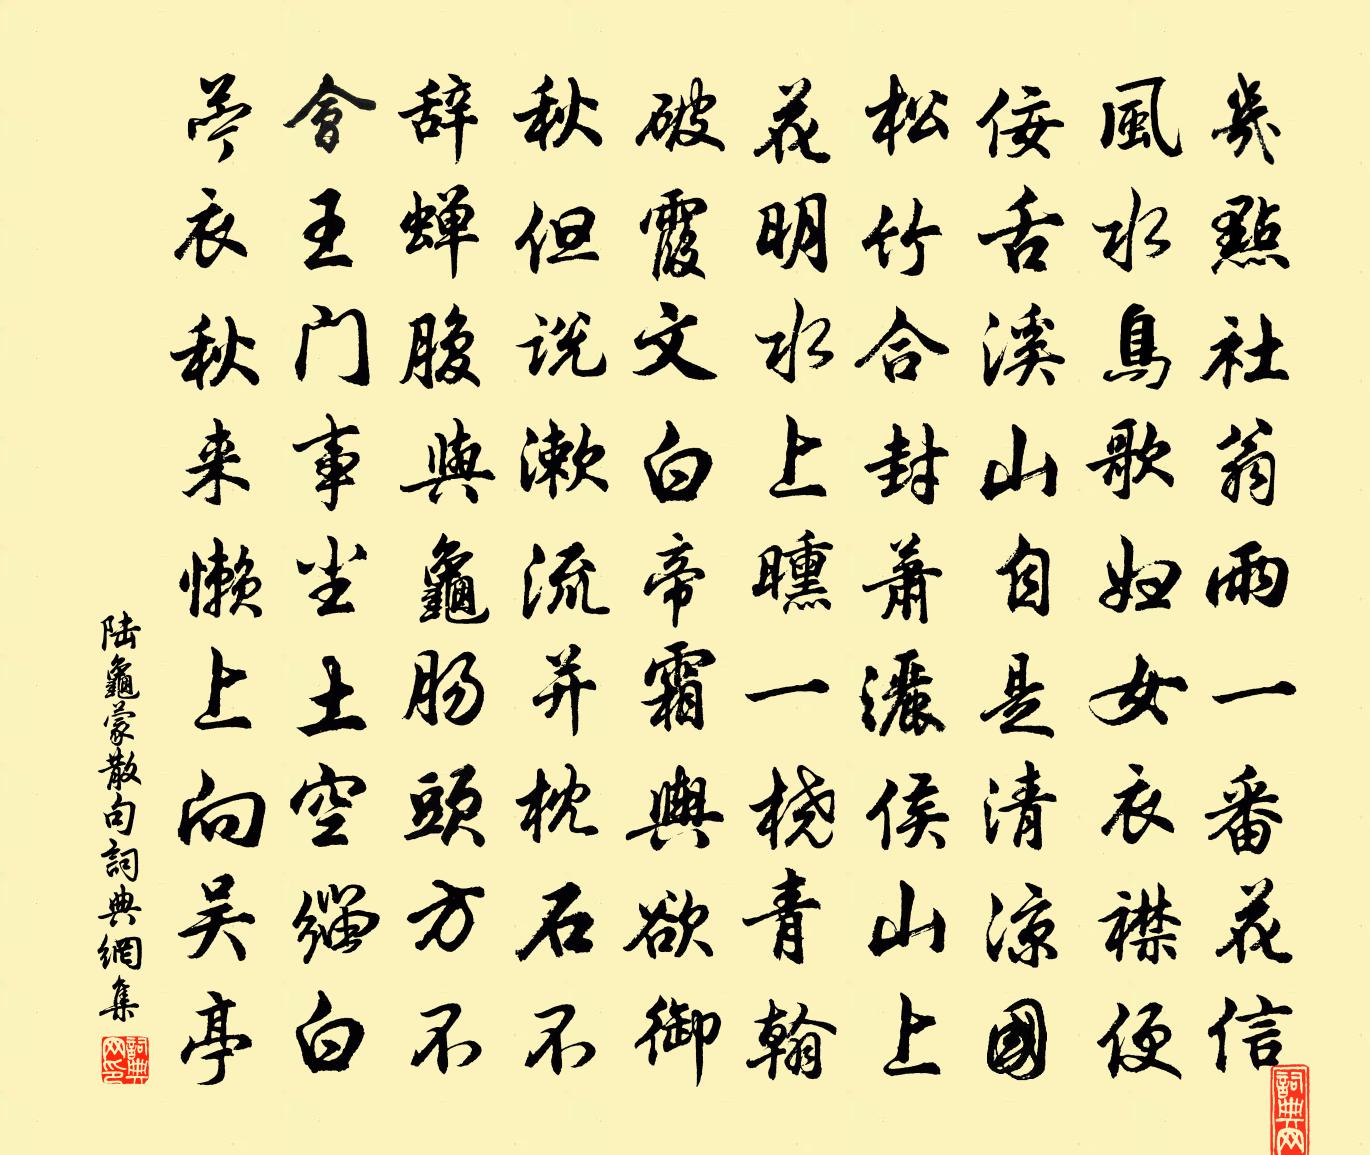 幾點社翁雨一番花信
風水鳥歌妇女衣襟便
佞舌溪山自是清涼國
松竹合封蕭灑侯山上
花明水上曛一桡青翰
破霞文白帝霜輿欲御
秋但说漱流并枕石不
辞蝉腹與龜肠頭方不
會王门事尘土空缁白
苎衣秋来懒上向吴亭
陆龜蒙散句詞典網集
詞典网印
詞典网